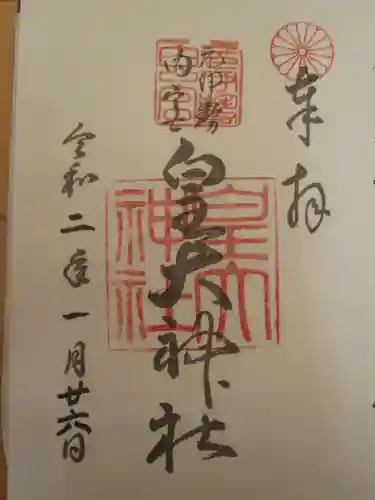 奉拝
元伊勢
内宮
皇大神社
令和二年一月廿六日
皇大
神社